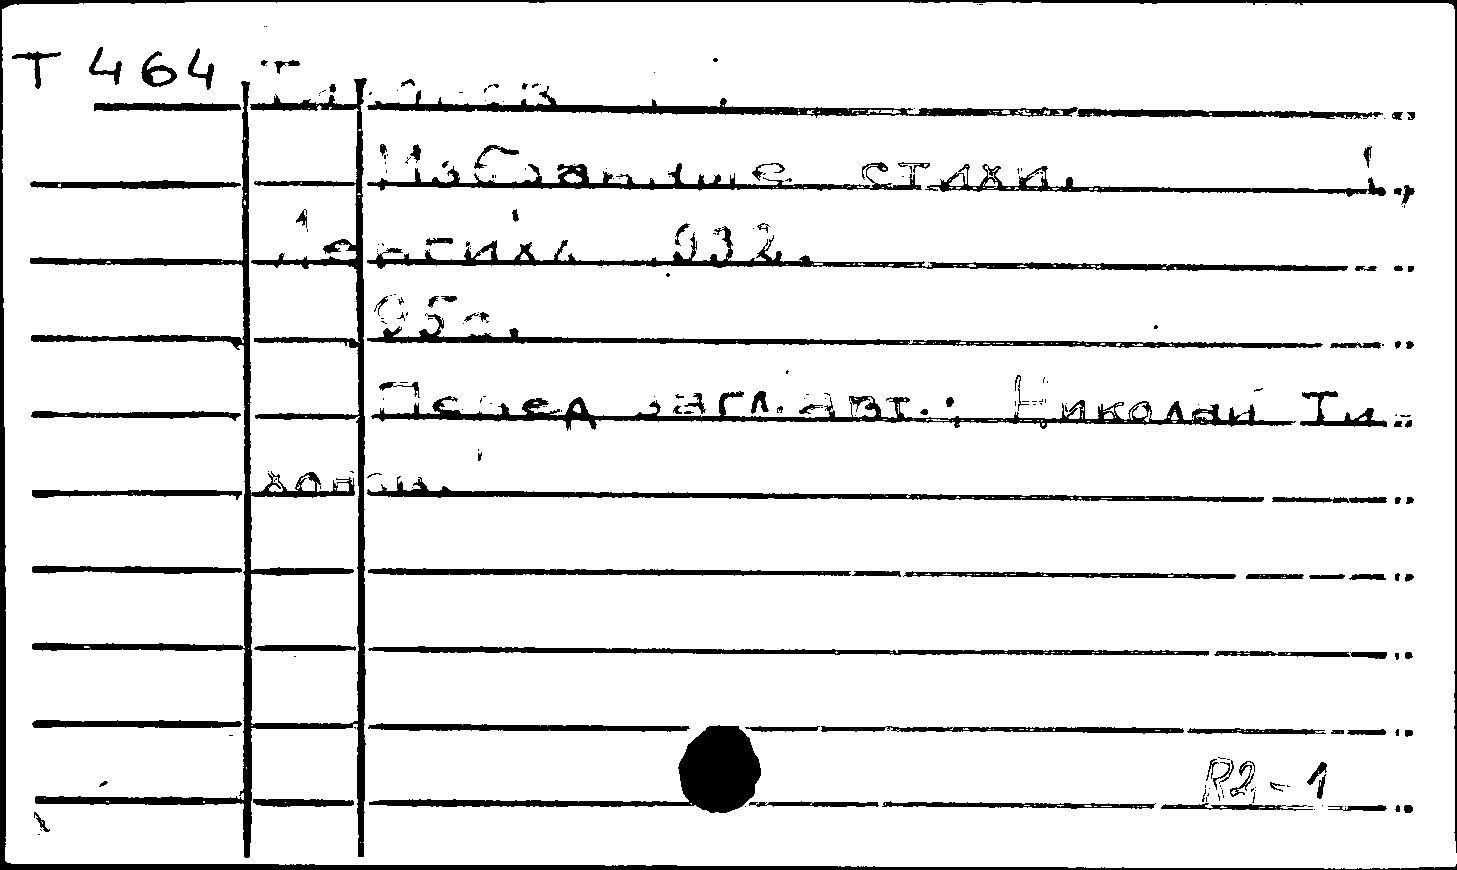 Т 464 Тихонов
Избранные стихи. Л.,
Ленгихл 1932.
95с.
Перед загл. авт.: Николай Ти-
хонов.
R2-1